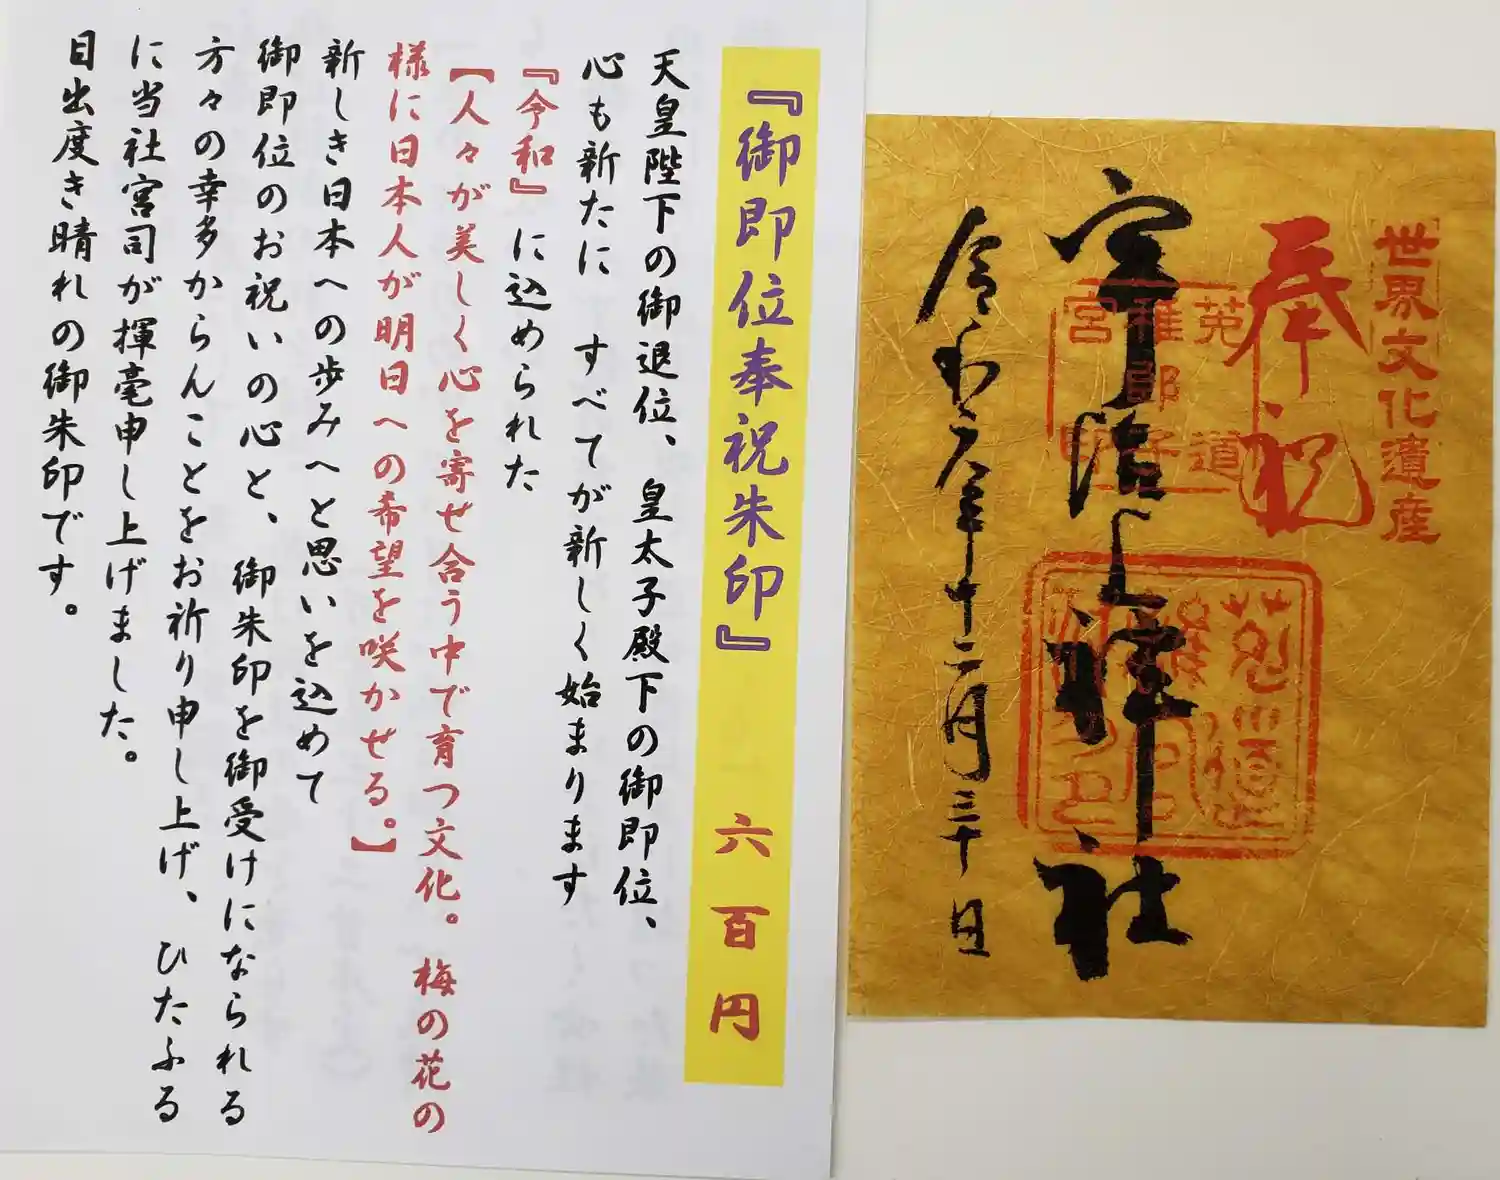 『御即位奉祝朱印』 六百円
天皇陛下の御退位、皇太子殿下の御即位、
心も新たに すべてが新しく始まります
『令和』に込められた
【人々が美しく心を寄せ合う中で育つ文化。梅の花の
様に日本人が明日への希望を咲かせる。】
新しき日本への歩みへと思いを込めて
御即位のお祝いの心と、御朱印を御受けになられる
方々の幸多からんことをお祈り申し上げ、ひたふる
に当社宮司が揮毫申し上げました。
目出度き晴れの御朱印です。
世界文化遺産
奉祝
宇治上神社
令和元年十二月三十日
菟道
稚郎子
宮印